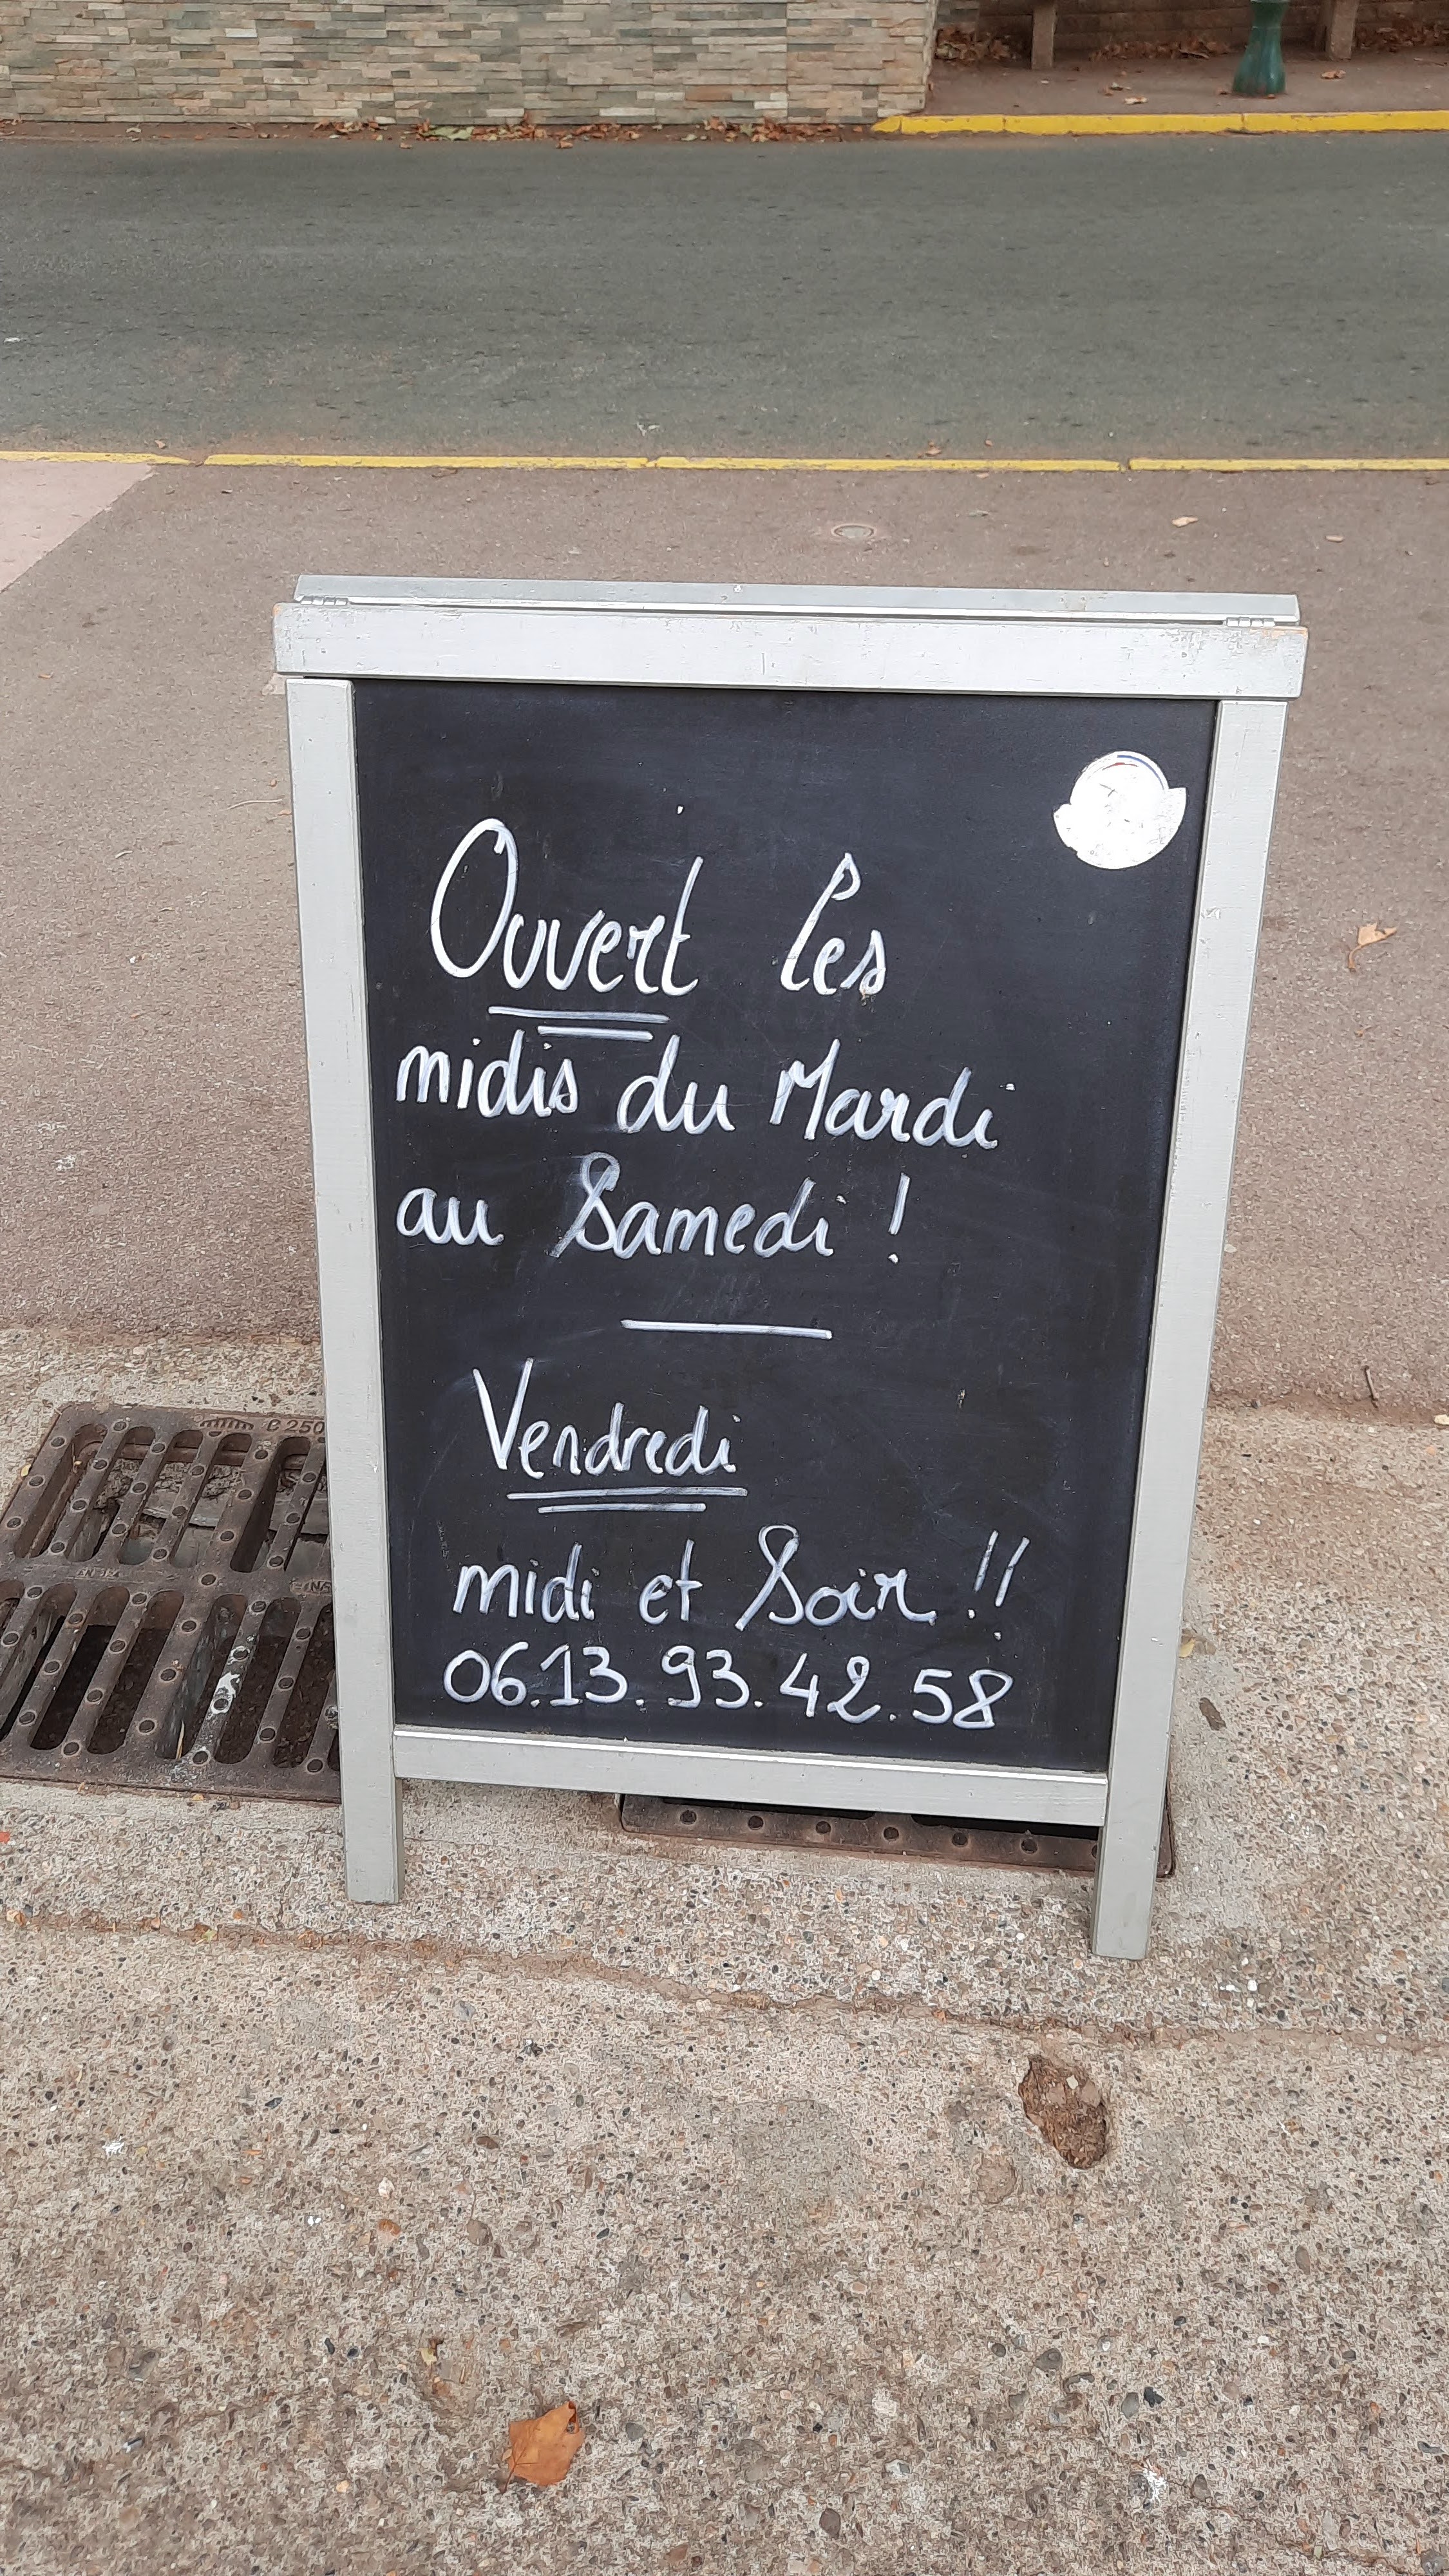 Ouvert les
midis du Mardi
au Samedi !
Vendredi
midi et Soir !!
06.13.93.42.58
C 250